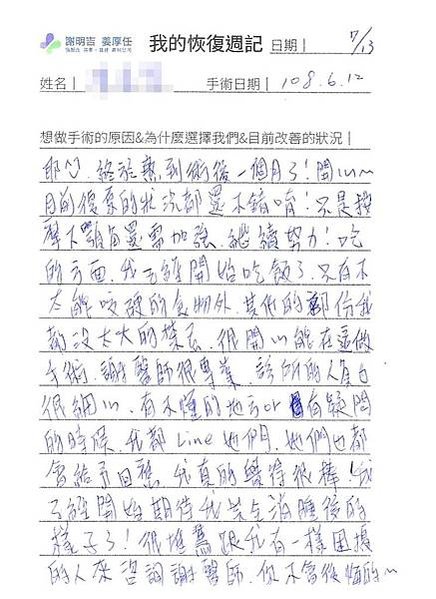 謝明吉 姜厚任
我的恢復週記 日期 | 7/13
姓名 | 手術日期 | 108.6.12
想做手術的原因&為什麼選擇我們&目前改善的狀況 |
耶^^ 終於熬到術後一個月了!開心~
目前復原的狀況都還不錯唷!只是按
摩下顎角還需加強,繼續努力!吃
的方面,我已經開始吃飯了,只有不
太能咬硬的食物外,其他的部份我
都沒太大的禁忌,很開心能在這做
手術,謝醫師很專業,診所的人員也
很細心,有不懂的地方or有疑問
的時候,我都Line她們,她們也都
會給予回應,我真的覺得很棒!我
已經開始期待我完全消腫後的
樣子了!很推薦跟我有一樣困擾
的人來咨詢謝醫師,你不會後悔的~